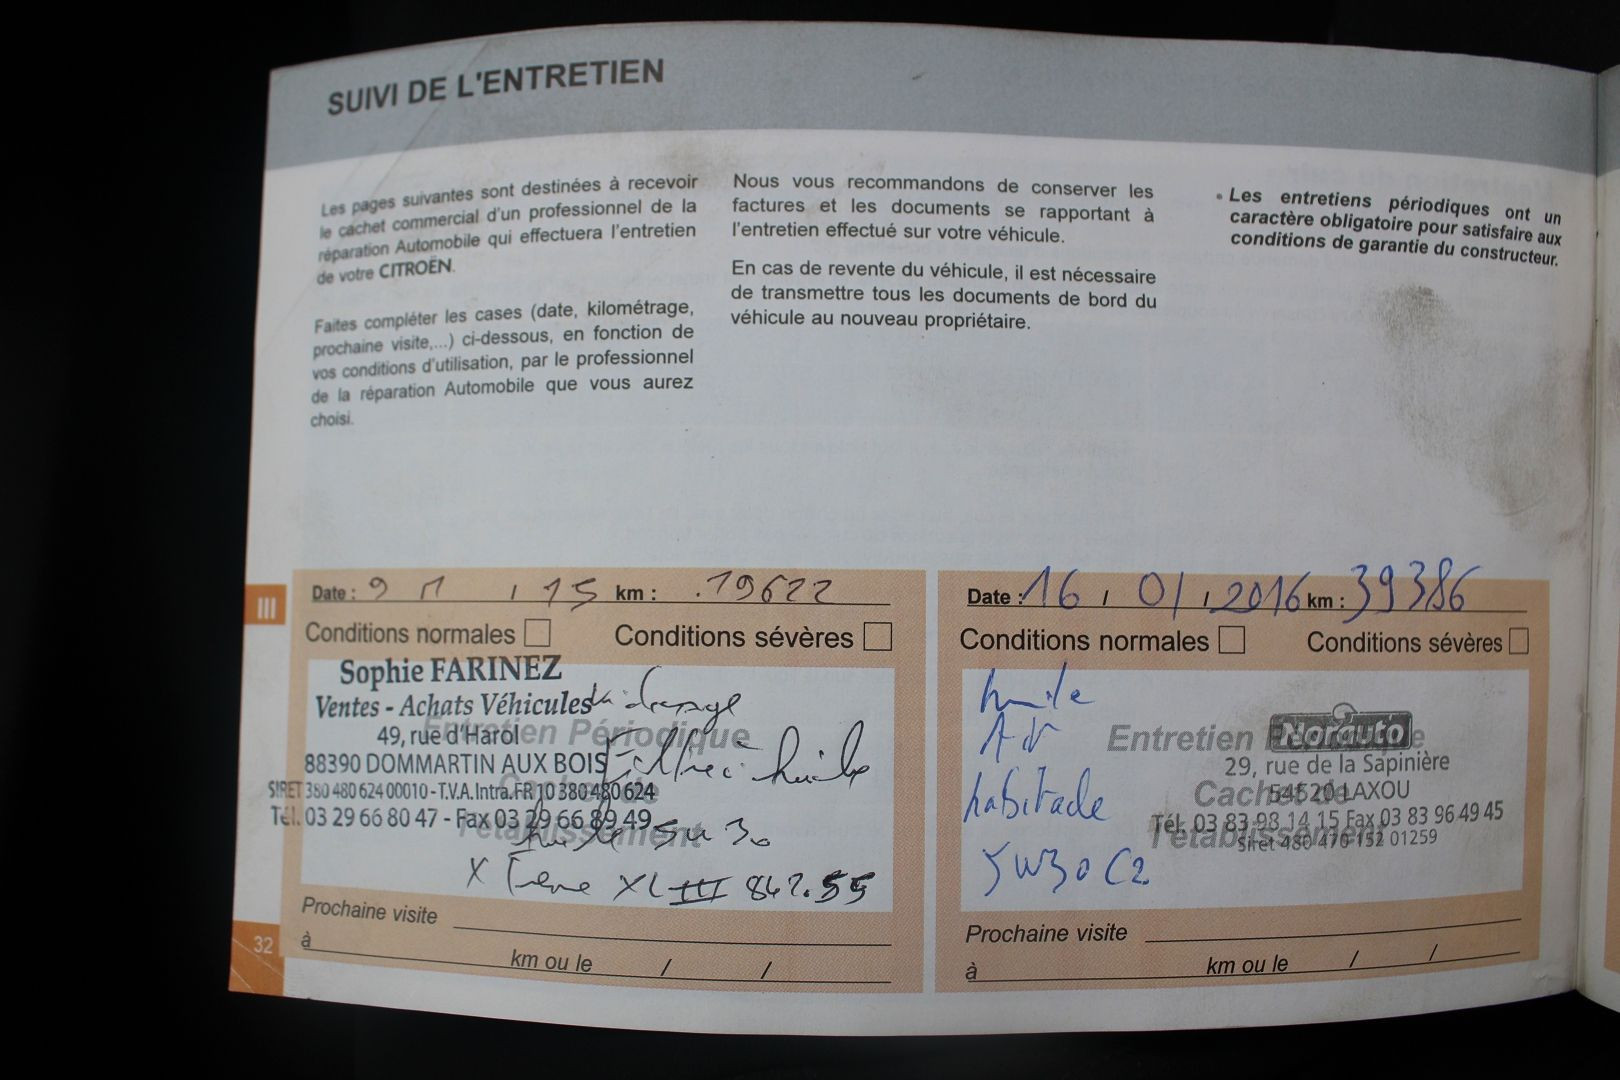 SUIVI DE L'ENTRETIEN
Les pages suivantes sont destinées à recevoir
le cachet commercial d'un professionnel de la
réparation Automobile qui effectuera l'entretien
de votre CITROËN.
Faites compléter les cases (date, kilométrage,
prochaine visite,...) ci-dessous, en fonction de
vos conditions d'utilisation, par le professionnel
de la réparation Automobile que vous aurez
choisi.
Nous vous recommandons de conserver les
factures et les documents se rapportant à
l'entretien effectué sur votre véhicule.
En cas de revente du véhicule, il est nécessaire
de transmettre tous les documents de bord du
véhicule au nouveau propriétaire.
• Les entretiens périodiques ont un
caractère obligatoire pour satisfaire aux
conditions de garantie du constructeur.
III
Date : 9 / 15 km : 19622
Conditions normales Conditions sévères
Entretien Périodique
Cachet de
l'établissement
Sophie FARINEZ
Ventes - Achats Véhicules
49, rue d'Harol
88390 DOMMARTIN AUX BOIS
SIRET 380 480 624 00010 - T.V.A. Intra. FR 10 380 480 624
Tél. 03 29 66 80 47 - Fax 03 29 66 89 49
Filtre à huile
huile 5w30
847.55
Prochaine visite
à km ou le / /
32
Date : 16 / 01 / 2016 km : 39386
Conditions normales Conditions sévères
huile
habitacle
5W30 C2
Entretien Périodique
Cachet de
l'établissement
Norauto
29, rue de la Sapinière
54520 LAXOU
Tél. 03 83 98 14 15 Fax 03 83 96 49 45
Siret 480 470 152 01259
Prochaine visite
à km ou le / /